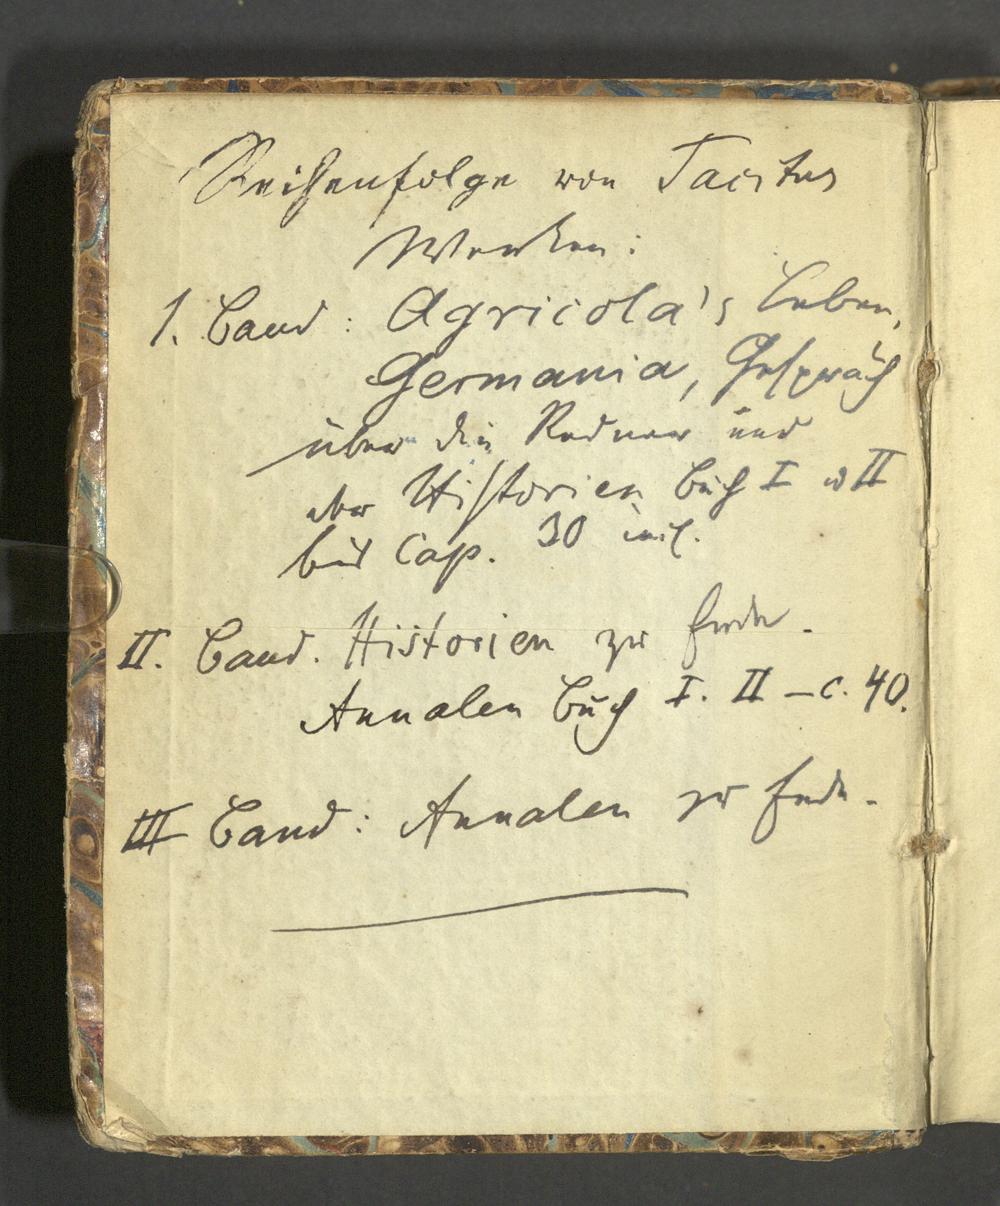 Reihenfolge von Tacitus
Werken:
1. Band: Agricola's Leben,
Germania, Gespräch
über die Redner und
der Historien Buch I u II
bis Cap. 30 incl.
II. Band. Historien zu Ende.
Annalen Buch I. II – c. 40.
III Band: Annalen zu Ende.